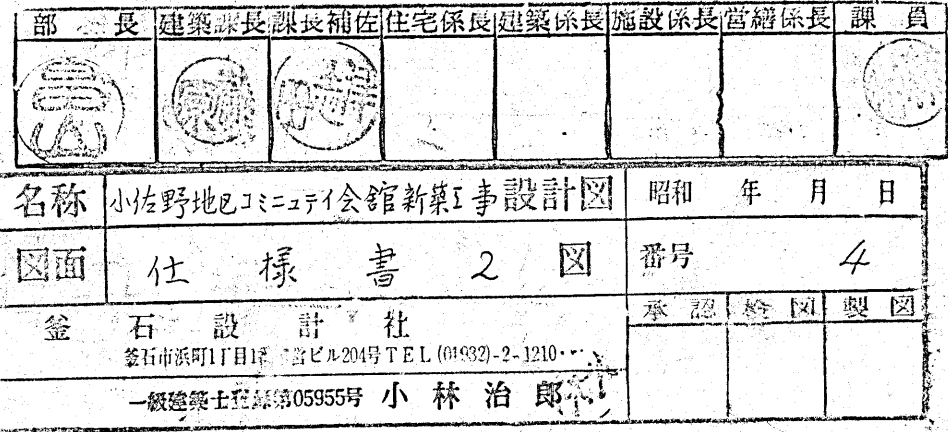 部長 建築課長 課長補佐 住宅係長 建築係長 施設係長 営繕係長 課員
名称 小佐野地区コミニュテイ会館新築工事設計図 昭和 年 月 日
図面 仕様書2図 番号 4
承認 検図 製図
釜石設計社
釜石市浜町1丁目1 ビル204号 TEL (01932)-2-1210
一級建築士登録第05955号 小林治郎